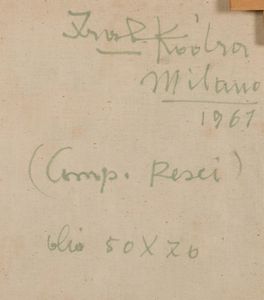 Ibrahim Kodra
Milano
1967
(Comp. Pesci)
olio 50X70